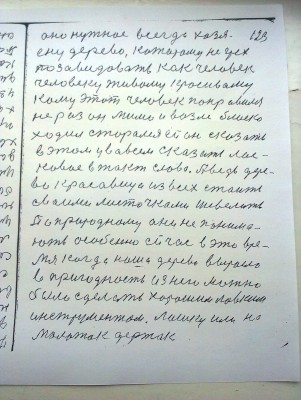 оно нужное всегда хозя- 123
ену дерево, которому не грех
позавидовать как человек
человеку живому красивому
кому этот человек понравился
не раз он мимо и возле близко
ходил старался он сказать
в этом и вовсем сказать лас-
ковое в такт слова. А ведь дере-
во красавец из всех стоить
своими листочками шевелить
По природному они не понима-
ють особенно сичас в это вре-
мя когда наша дерево выросло
в пригодность из него можно
было сделать хорошим ловким
инструментом. Лошку или на
молоток держак